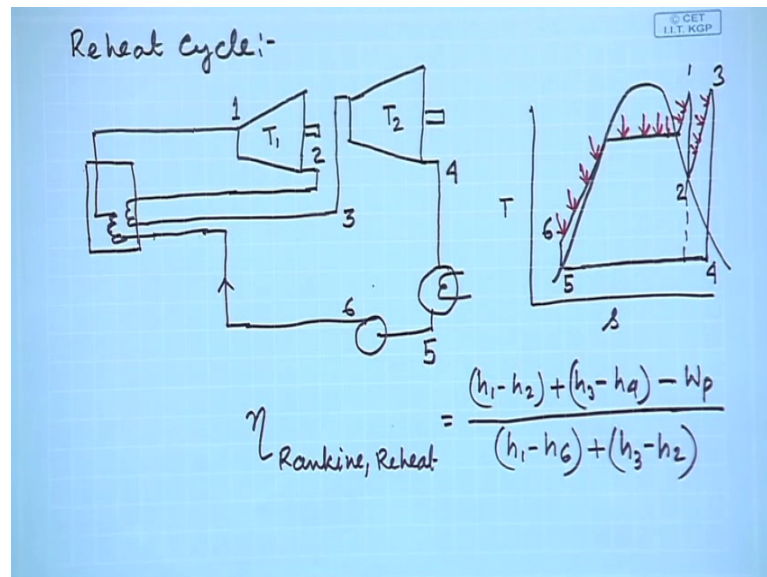 © CET
I.I.T. KGP
Reheat Cycle:-
1
T₁
2
3
T₂
4
5
6
T
s
1
3
2
6
5
4
η Rankine, Reheat = (h₁-h₂)+(h₃-h₄) - Wp
(h₁-h₆)+(h₃-h₂)